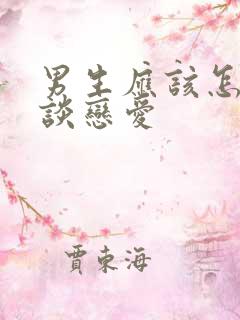 男生應該怎
談戀愛
賈東海